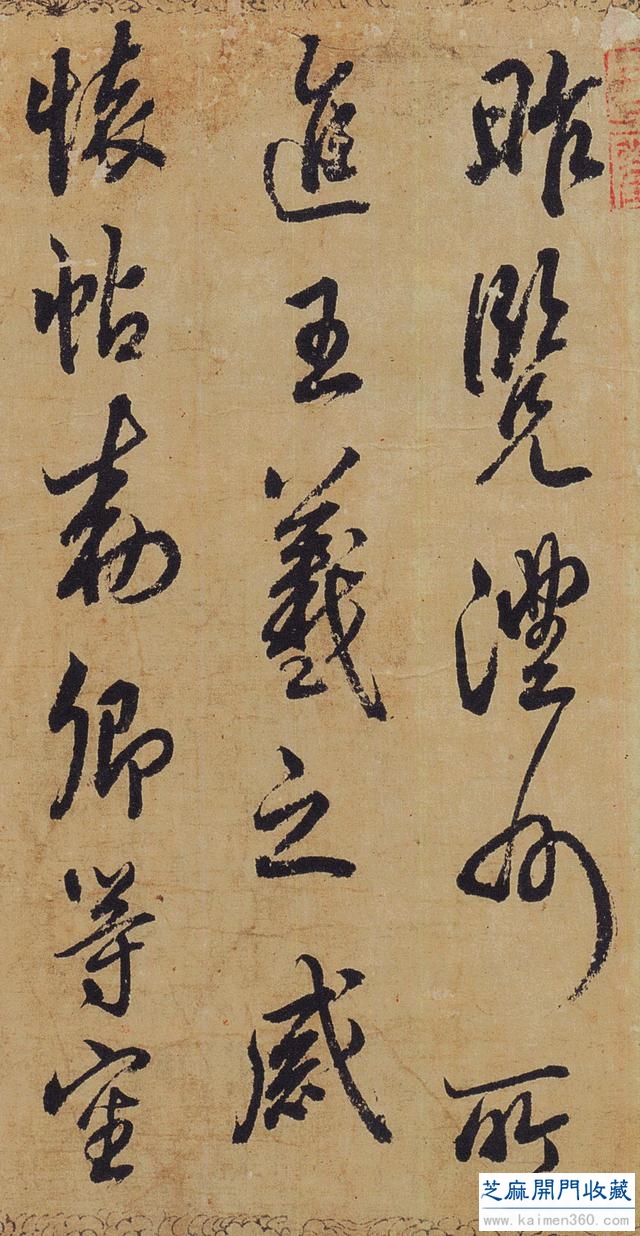 昨覽澧州所
進王羲之感
懷帖勅卿等
芝麻開門收藏
www.kaimen360.com